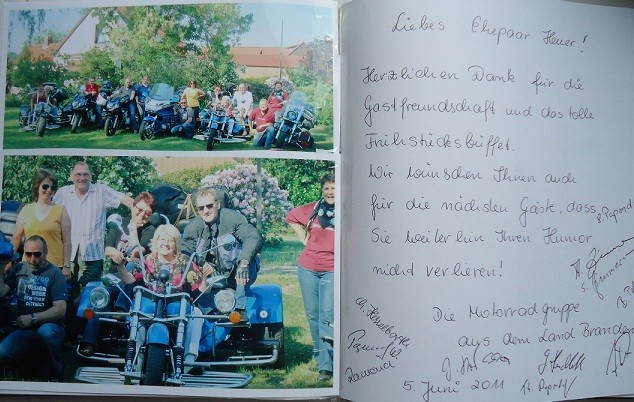 Liebes Ehepaar Heuer!
Herzlichen Dank für die
Gastfreundschaft und das tolle
Frühstücksbüffet.
Wir wünschen Ihnen auch
für die nächsten Gäste, dass
Sie weiterhin Ihren Humor
nicht verlieren!
Die Motorradgruppe
aus dem Land
5. Juni 2011